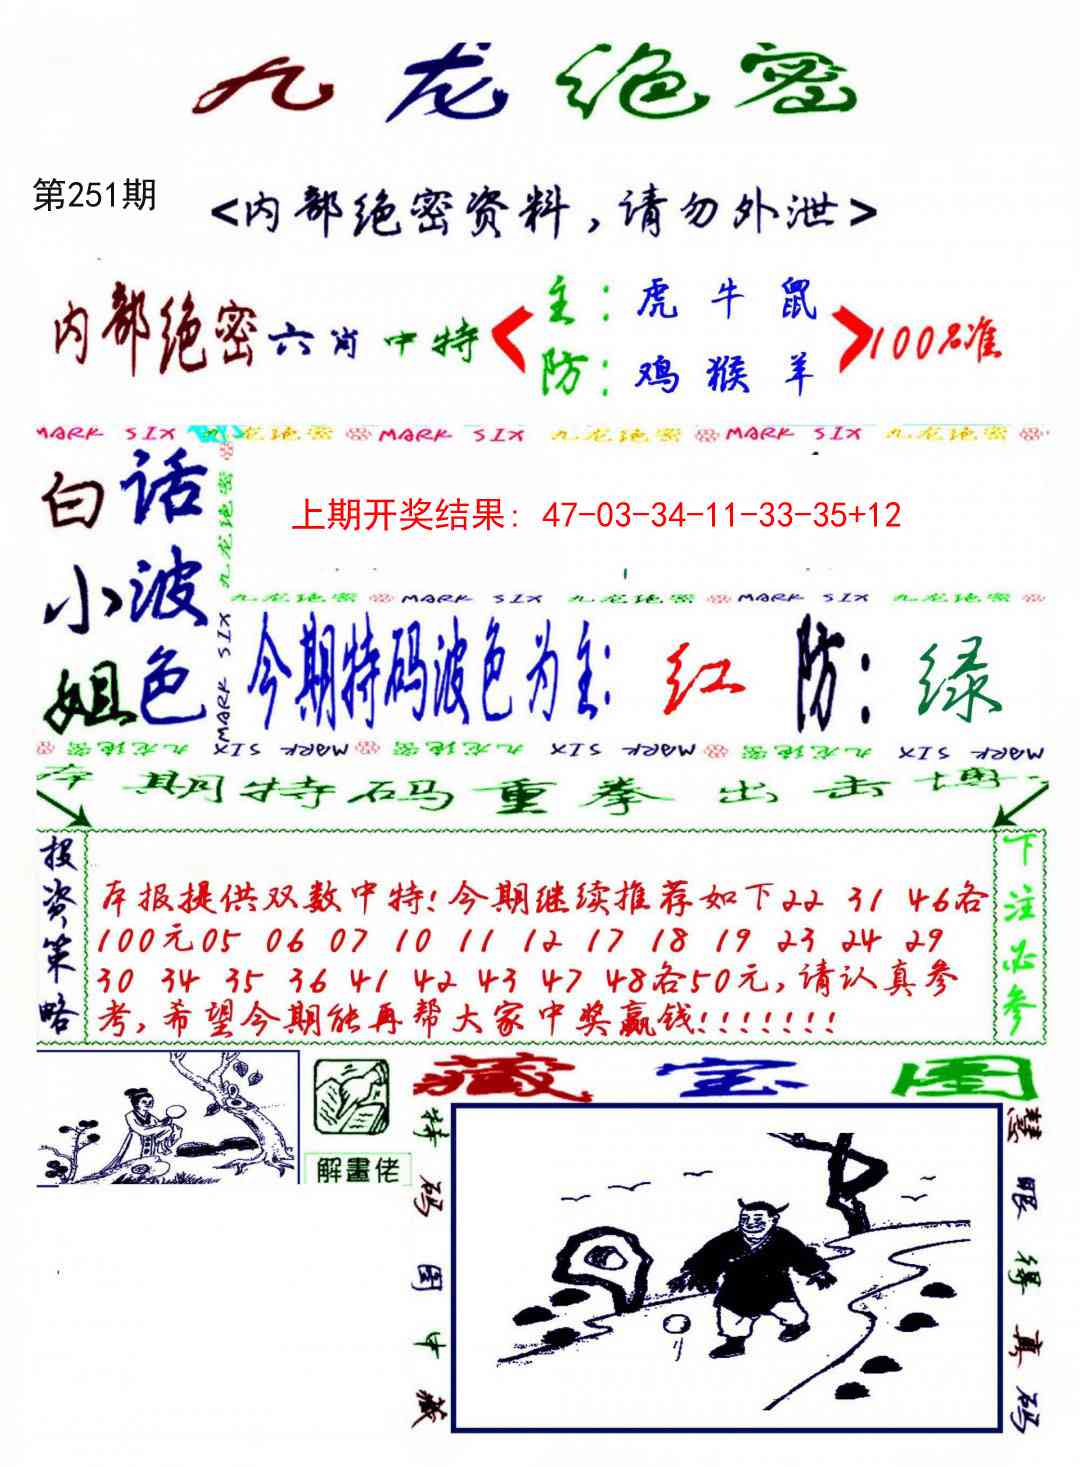 九龙绝密
第251期
<内部绝密资料,请勿外泄>
内部绝密六肖中特
主:虎 牛 鼠
防:鸡 猴 羊
100%准
MARK SIX 九龙绝密 MARK SIX 九龙绝密 MARK SIX 九龙绝密
白话
小波
姐色
九龙绝密
MARK SIX
上期开奖结果: 47-03-34-11-33-35+12
九龙绝密 MARK SIX 九龙绝密 MARK SIX 九龙绝密
今期特码波色为主: 红 防: 绿
九龙绝密 MARK SIX 九龙绝密 MARK SIX 九龙绝密 MARK SIX
本期特码重拳出击博
投资策略
本报提供双数中特!今期继续推荐如下22 31 46各
100元05 06 07 10 11 12 17 18 19 23 24 29
30 34 35 36 41 42 43 47 48各50元,请认真参
考,希望今期能再帮大家中奖赢钱!!!!!!!
下注必参
解畫佬
藏宝图
特码图中藏
慧眼得真码